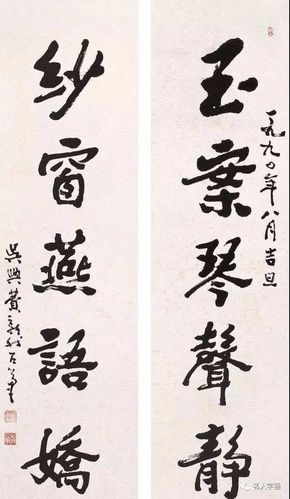 玉案琴聲静
一九九〇年八月吉旦
紗窗燕語嬌
吳興費新我左筆
名人字画